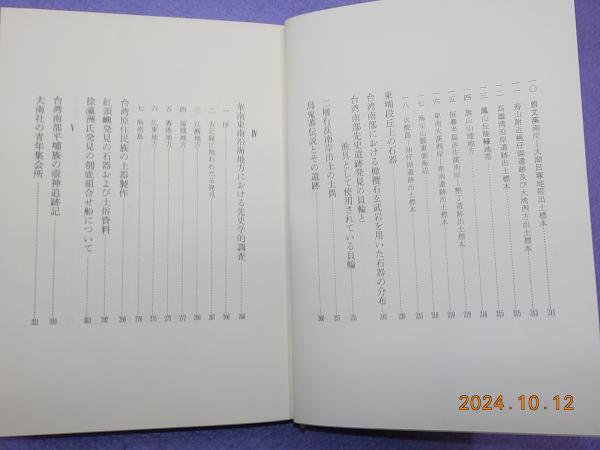 一〇 曽文溪南岸―大湖貝塚地帯出土標本 211
一一 寿山附近桃仔園遺跡及び大湾西方出土標本 212
一二 高雄湾沿岸遺跡出土標本 215
一三 鳳山丘陵縁地帯 215
一四 旗山山地地方 216
一五 恒春半島 - 墾丁遺跡出土標本 219
一六 卑南大溪西岸―卑南遺跡出土標本 219
一七 海岸山脈東側海辺 214
一八 火焼島 220
東埔段丘上の石器 230
台湾南部における橄欖石玄武岩を用いた石器の分布 242
台湾南部先史遺跡発見の貝輪と
漁具として使用されている貝輪 251
二層行渓南岸出土の土偶 255
烏鬼蕃伝説とその遺跡 260
Ⅳ
華南東南沿海地方における先史学的調査 266
一 序 266
二 古記録に現われたる発見 267
三 江蘇地方 268
四 福建地方 272
五 香港地方 273
六 広東地方 275
七 海南島 278
台湾原住民族の土器製作 280
紅頭嶼発見の石器および土俗資料 292
徐瀛洲氏発見の刳底組合せ船について 303
Ⅴ
台湾南部平埔族の壺神追跡記 310
大南社の青年集会所 321
2024.10.12